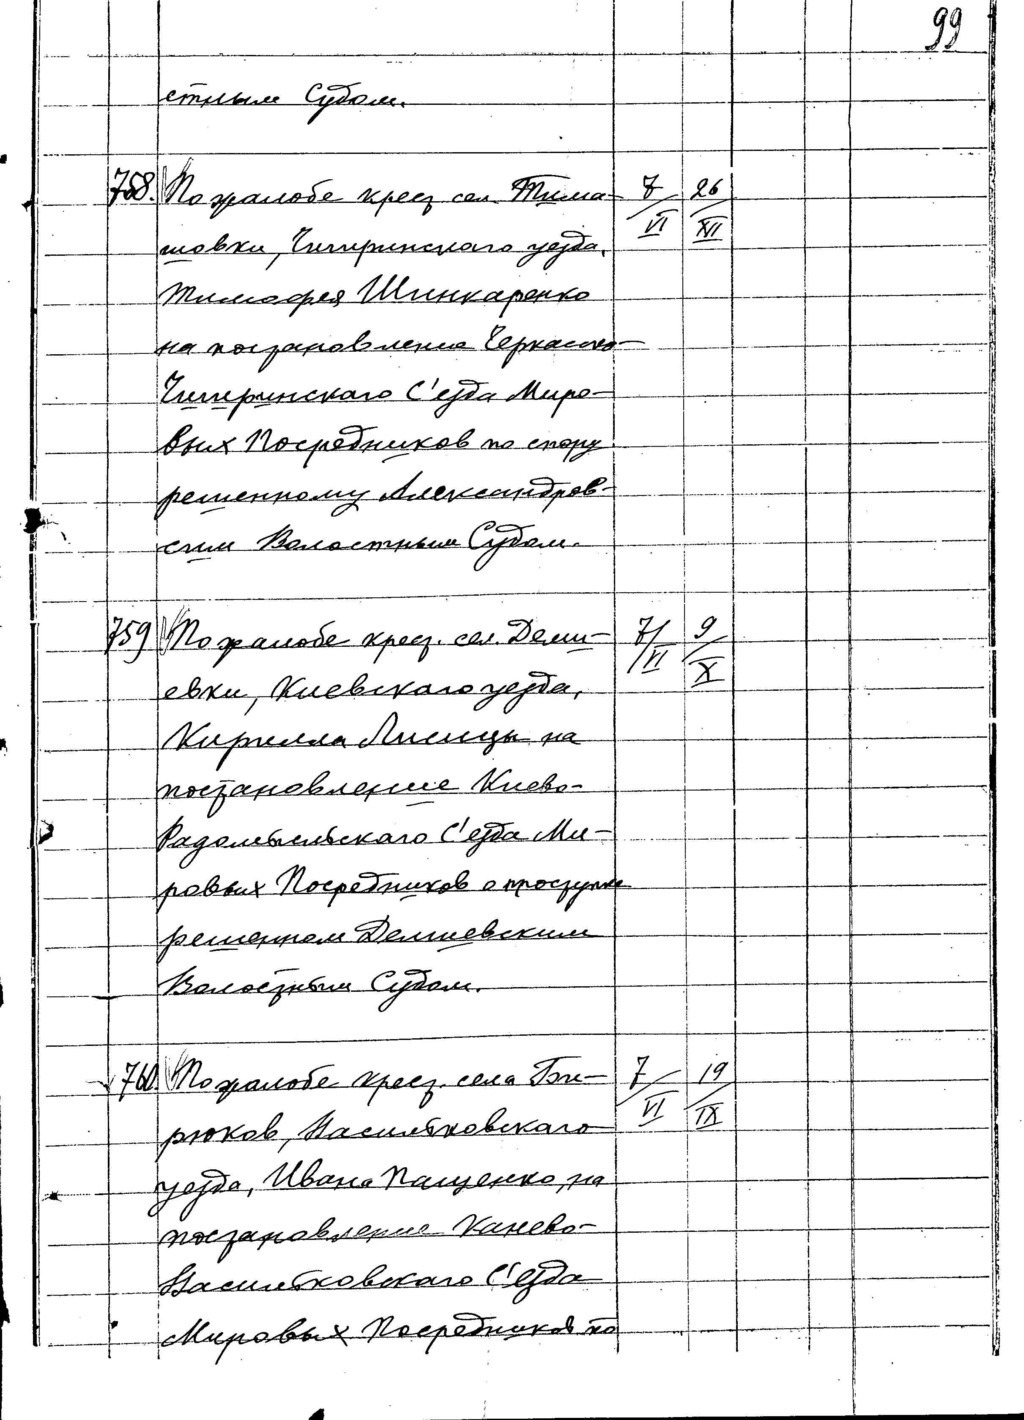 99
стным Судом.
758. По жалобе крест. сел. Тима- 7/VI 26/XII
шовки, Чигиринскаго уезда,
Тимофея Шинкаренко
на постановление Черкасско-
Чигиринскаго С'езда Миро-
вых Посредников по спору
решенному Александров-
ским Волостным Судом.
759 По жалобе крест. сел. Деми- 7/VI 9/X
евки, Киевскаго уезда,
Кирилла Лисицы на
постановление Киево-
Радомысльскаго С'езда Ми-
ровых Посредников о проступке
решенном Демиевским
Волостным Судом.
760. По жалобе крест. села Би- 7/VI 19/IX
рюков, Васильковскаго
уезда, Ивана Пащенко, на
постановление Канево-
Васильковскаго С'езда
Мировых Посредников по